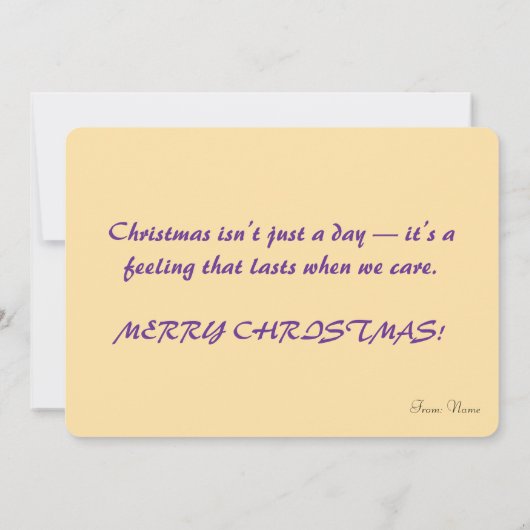 Christmas isn't just a day — it's a
feeling that lasts when we care.
MERRY CHRISTMAS!
From: Name